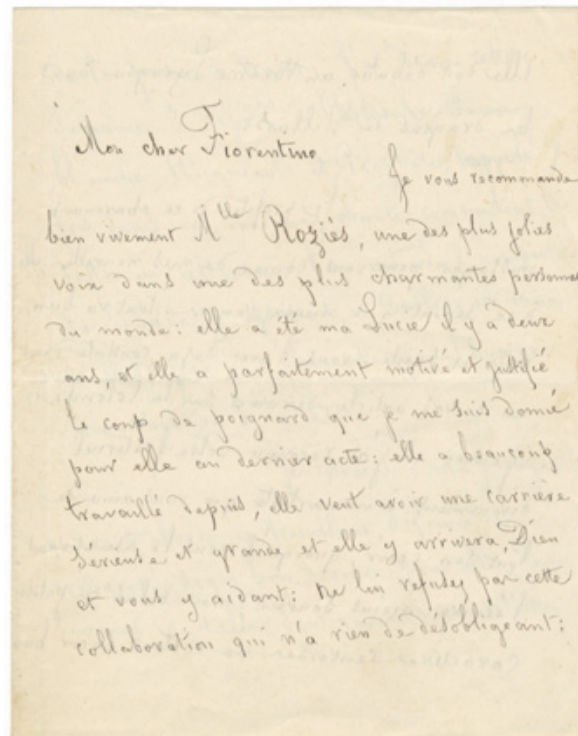 Mon cher Fiorentino
Je vous recommande
bien vivement Mlle Roziés, une des plus jolies
voix dans une des plus charmantes personnes
du monde: elle a été ma Lucie il y a deux
ans, et elle a parfaitement motivé et justifié
le coup de poignard que je me suis donné
pour elle au dernier acte: elle a beaucoup
travaillé depuis, elle veut avoir une carrière
sérieuse et grande et elle y arrivera, Dieu
et vous y aidant: ne lui refusez pas cette
collaboration qui n'a rien de désobligeant: